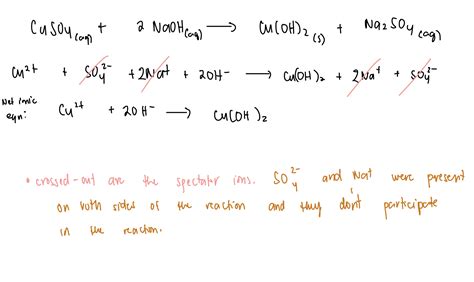 CuSO₄ (aq) + 2 NaOH (aq) → Cu(OH)₂ (s) + Na₂SO₄ (aq)
Cu²⁺ + SO₄²⁻ + 2Na⁺ + 2OH⁻ → Cu(OH)₂ + 2Na⁺ + SO₄²⁻
Net ionic eqn: Cu²⁺ + 2OH⁻ → Cu(OH)₂
* crossed-out are the spectator ions. SO₄²⁻ and Na⁺ were present
on both sides of the reaction and they don't participate
in the reaction.